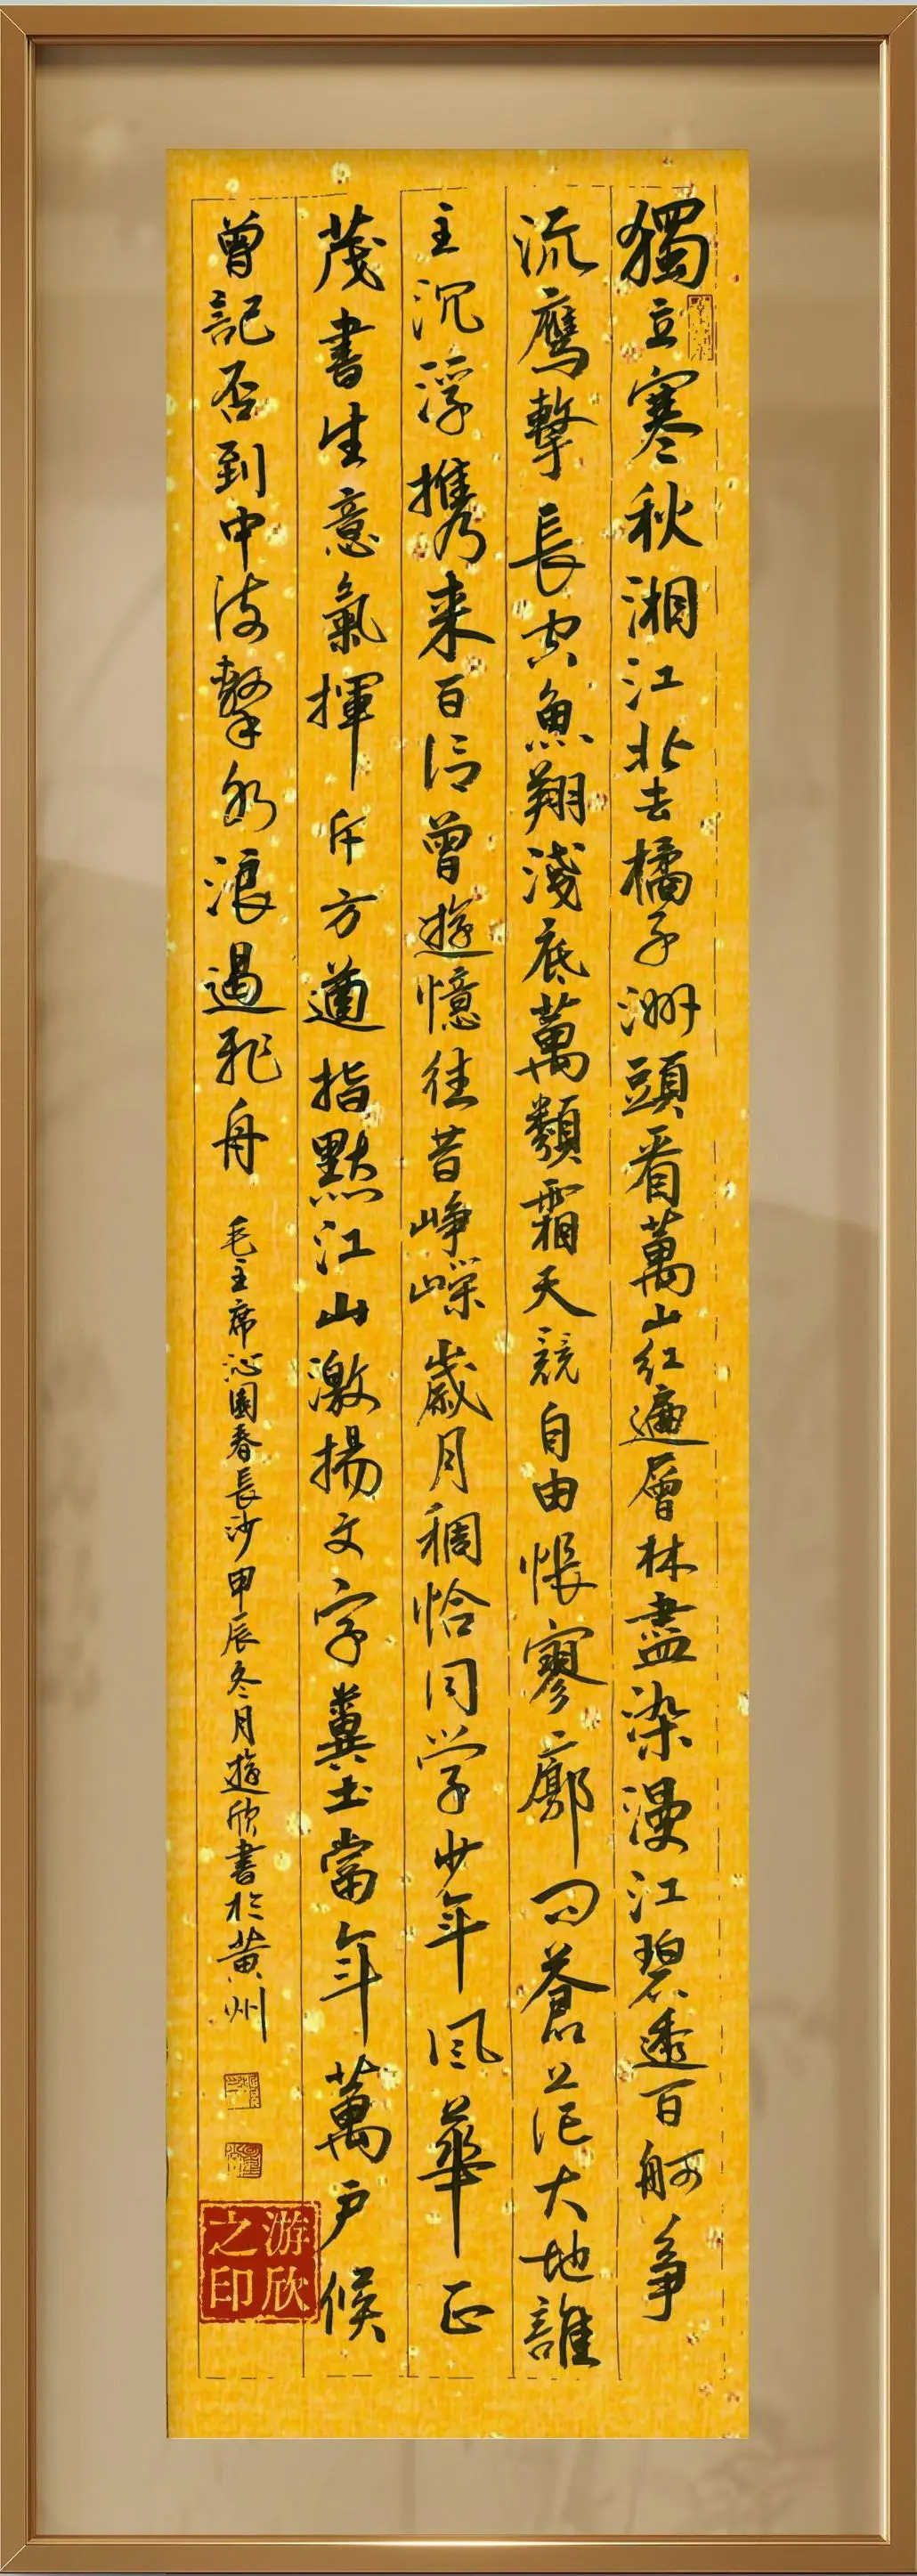 獨立寒秋湘江北去橘子洲頭看萬山红遍層林盡染漫江碧透百舸爭
流鹰擊長空魚翔淺底萬類霜天競自由悵寥廓问蒼茫大地誰
主沉浮携来百侣曾遊憶往昔崢嶸歲月稠恰同学少年风華正
茂書生意氣揮斥方遒指點江山激揚文字糞土當年萬户候
曾記否到中流擊水浪遏飛舟
毛主席沁園春長沙甲辰冬月遊欣書於黄州
游欣之印